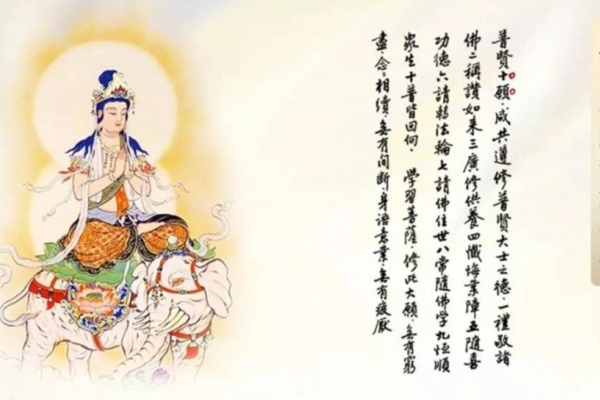 普賢十願·咸共遵修普賢大士之德·一禮敬諸
佛二稱讚如來三廣修供養四懺悔業障五隨喜
功德六請轉法輪七請佛住世八常隨佛學九恆順
眾生十普皆回向·學習菩薩·修此大願·無有窮
盡·念·相續·無有間斷身語意業·無有疲厭